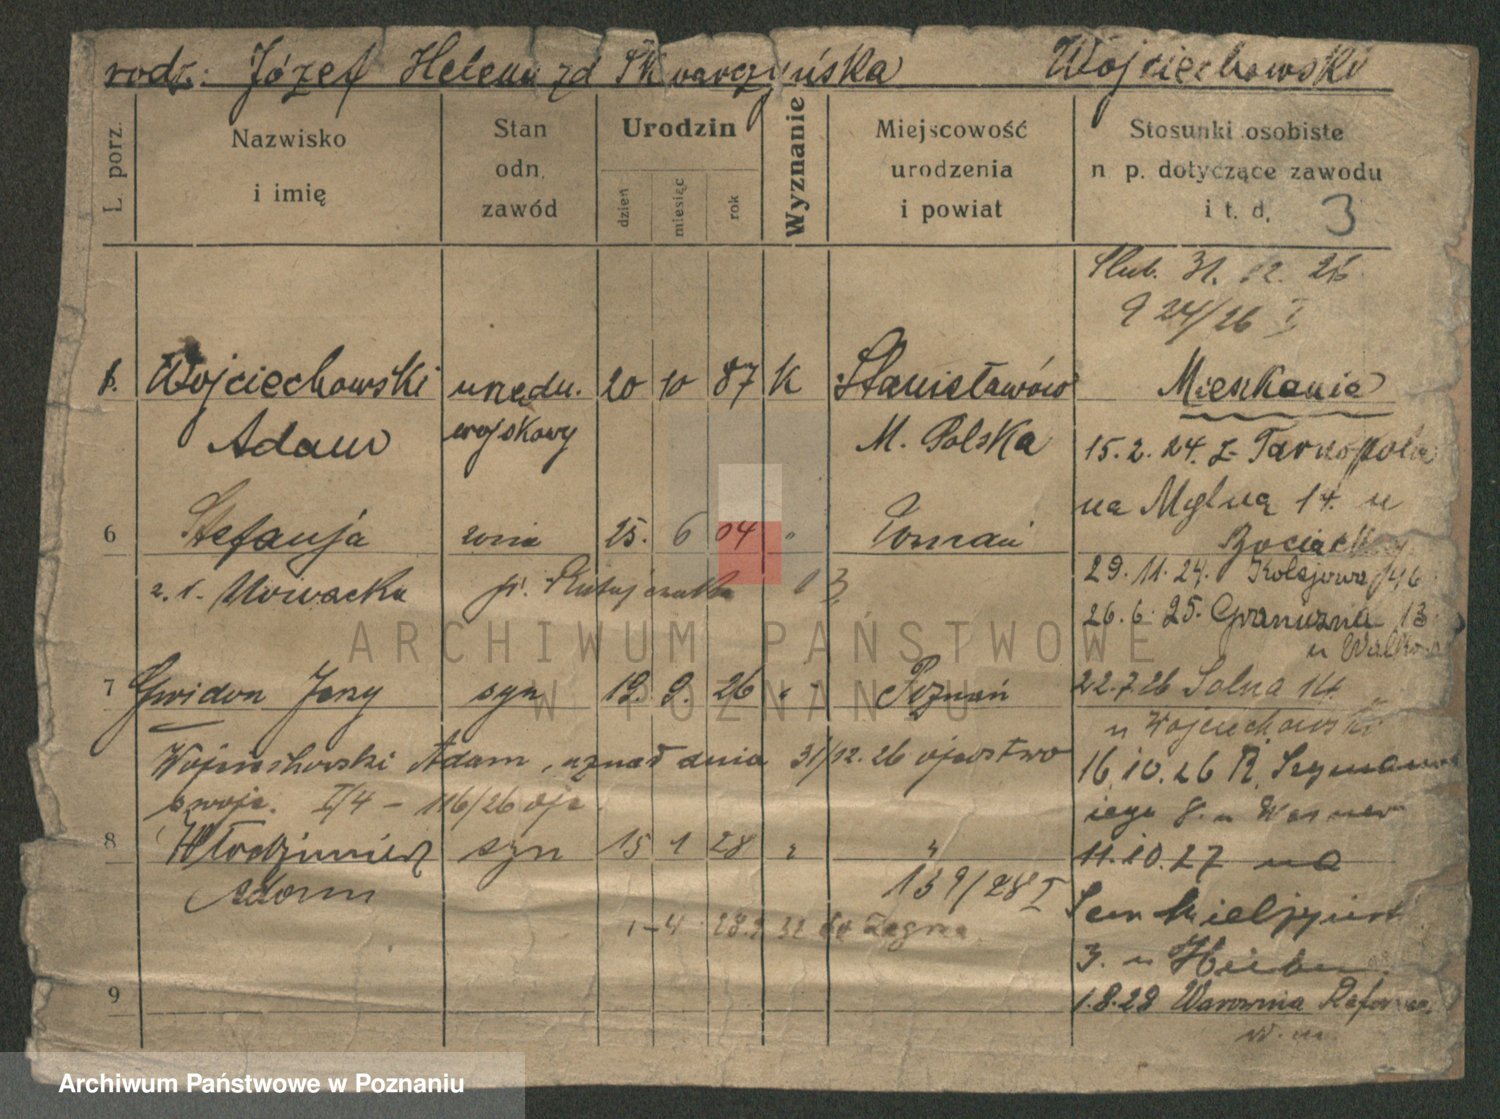 rodz: Józef Helena zd Skwarczyńska Wojciechowski
L. porz.
Nazwisko i imię
Stan odn. zawód
Urodzin
dzień miesiąc rok
Wyznanie
Miejscowość urodzenia i powiat
Stosunki osobiste n p. dotyczące zawodu i t. d. 3
Ślub. 31. 12. 26
924/26 I
Wojciechowski urzędn. 20 10 87 K Stanisławów Mieszkanie
Adam wojskowy M. Polska 15. 2. 24. z Tarnopola
na Mylną 14. u
6 Stefanja żona 25. 6 04 " Poznań
z. d. Nowacka 13
29. 11. 24. Kolejowa 46
26. 6. 25. Graniczna 13
7 Gwidon Jerzy syn 19. 9. 26 " Poznań 22.7.26 Solna 14
u Wojciechowski
Wojciechowski Adam, uznał dnia 31/12.26 ojcostwo 16.10.26
swoje. I/4 - 116/26
8 Włodzimierz syn 15 1 28 " " 11.10.27 na
Adam 139/28 I
1-4 28.9.32
3. u
9 1.8.28
w. m.
ARCHIWUM PAŃSTWOWE
W POZNANIU
Archiwum Państwowe w Poznaniu